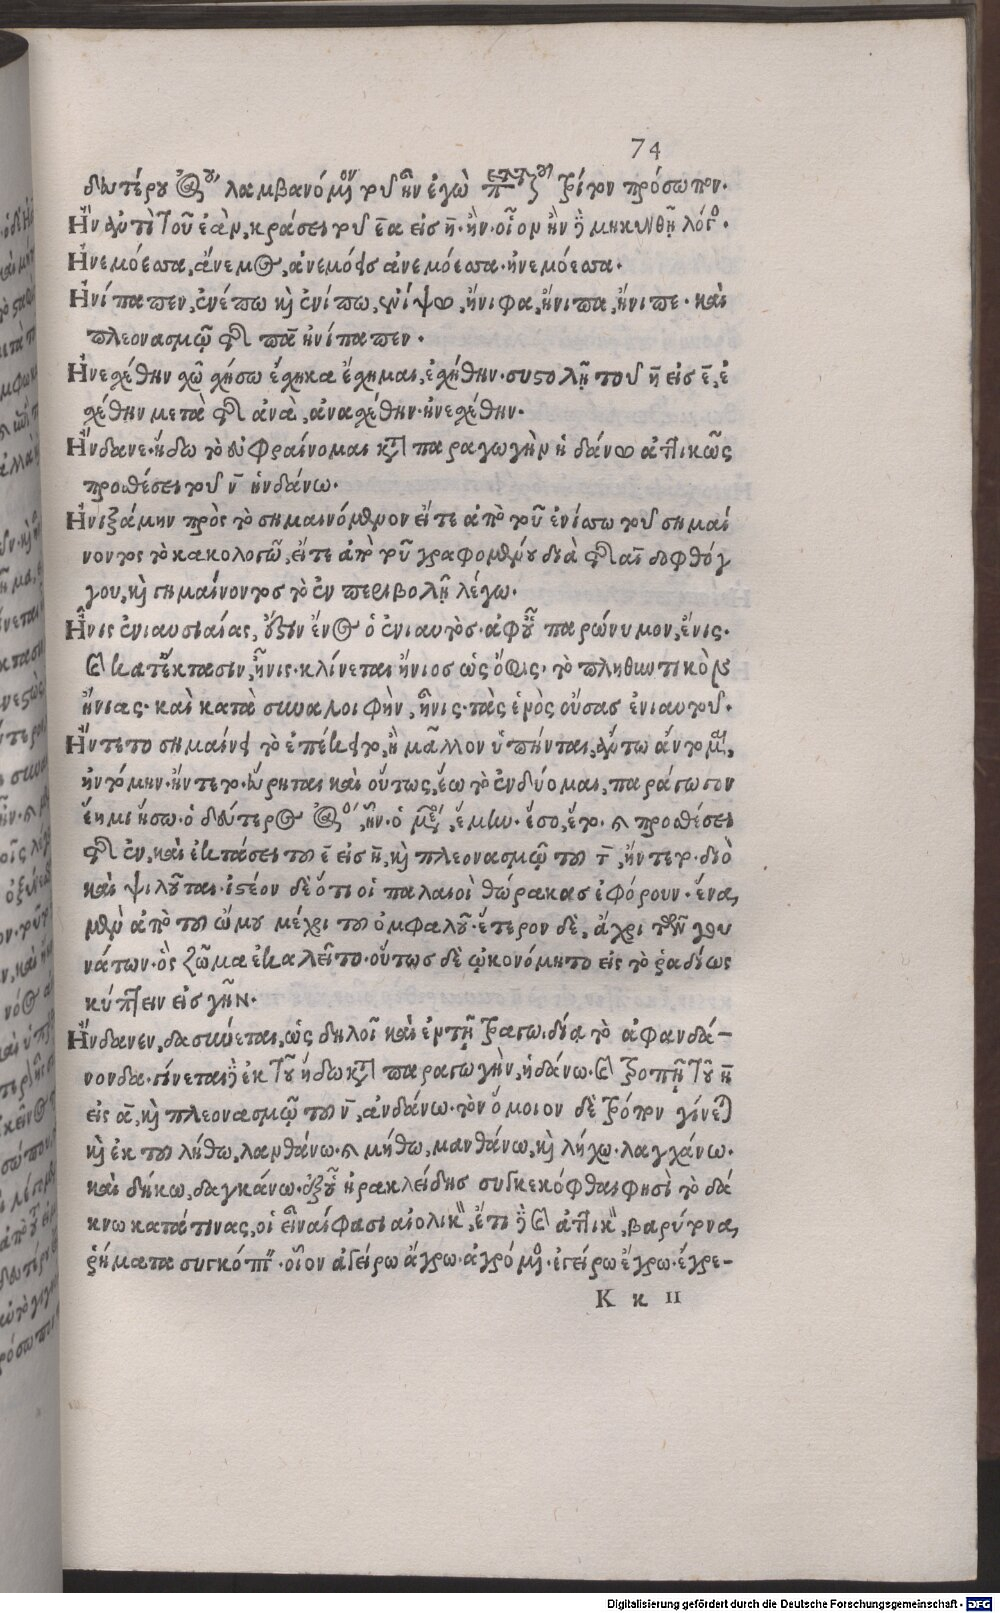 74
δευτέρου λαμβανόμενον τοῦ ἦν ἐγὼ τρίτον πρόσωπον.
Ἢν ἀντὶ τοῦ ἐὰν, κράσει τοῦ ε̄α εἰς η̄. ἢν. οἷον ἢν μηκυνθῇ λόγος.
Ἠνεμόεσσα, ἄνεμος, ἀνεμόεις ἀνεμόεσσα. ἠνεμόεσσα.
Ἠνίπαπεν, ἐνέπω καὶ ἐνίπω, ἐνίψω, ἤνιφα, ἤνιπα, ἤνιπε. καὶ
πλεονασμῷ τῆς πᾱ ἠνίπαπεν.
Ἠνεχέθην χῶ χήσω ἔχηκα ἔχημαι, ἐχήθην. συστολῇ τοῦ η̄ εἰς ε̄, ἐ
χέθην μετὰ τῆς ἀνὰ, ἀναχέθην. ἠνεχέθην.
Ἥνδανε. ἥδω τὸ εὐφραίνομαι κατὰ παραγωγὴν ἡδάνω ἀττικῶς
προσθέσει τοῦ ν̄ ἡνδάνω.
Ἠνιξάμην πρὸς τὸ σημαινόμενον εἴτε ἀπὸ τοῦ ἐνίσσω τοῦ σημαί
νοντος τὸ κακολογῶ, εἴτε ἀπὸ τοῦ γραφομένου διὰ τῆς αῑ διφθόγ
γου, καὶ σημαίνοντος τὸ ἐν περιβολῇ λέγω.
Ἤνις ἐνιαυσιαίας, ἔστιν ἔνος ὁ ἐνιαυτὸς. ἀφ' οὗ παρώνυμον, ἔνις.
καὶ κατ' ἔκτασιν, ἤνις. κλίνεται ἤνιος ὡς ὄφις. τὸ πληθυντικὸν
ἤνιας. καὶ κατὰ συναλοιφὴν, ἤνις. τὰς ἑνὸς οὔσας ἐνιαυτοῦ.
Ἤντετο σημαίνει τὸ ἐπέκειτο, ἢ μᾶλλον ὑπήντα, ἄντω ἄντομαι,
ἠντόμην. ἤντετο. εὕρηται καὶ οὕτως, ἕω τὸ ἐνδύομαι, παράγωγον
ἕημι ἥσω. ὁ δεύτερος ἀόριστος, ἦν. ὁ μέσος, ἕμην. ἕσο, ἕτο. καὶ προσθέσει
τῆς ἐν, καὶ ἐκτάσει τοῦ ε̄ εἰς η̄, καὶ πλεονασμῷ τοῦ τ̄, ἤντετο. διὸ
καὶ ψιλοῦται. ἰστέον δὲ ὅτι οἱ παλαιοὶ θώρακας ἐφόρουν. ἕνα
μὲν ἀπὸ τοῦ ὤμου μέχρι τοῦ ὀμφαλοῦ. ἕτερον δὲ, ἄχρι τῶν γου
νάτων. ὃς ζῶμα ἐκαλεῖτο. οὕτως δὲ ᾠκονόμητο εἰς τὸ ῥαδίως
κύπτειν εἰς γῆν.
Ἥνδανεν, δασύνεται, ὡς δηλοῖ καὶ ἐν τῇ τραγωδία τὸ ἀφανδά-
νοντα. γίνεται ἐκ τοῦ ἥδω κατὰ παραγωγὴν, ἡδάνω. καὶ τροπῇ τοῦ η̄
εἰς ᾱ, καὶ πλεονασμῷ τοῦ ν̄, ἁνδάνω. τὸν ὅμοιον δὲ τρόπον γίνεται
καὶ ἐκ τοῦ λήθω, λανθάνω. καὶ μήθω, μανθάνω, καὶ λήχω. λαγχάνω.
καὶ δήκω, δαγκάνω. ἐξ οὗ ἡρακλείδης συγκεκόφθαι φησὶ τὸ δά
κνω κατά τινας, οἱ εἶναί φασι αἰολικὰ, ἔτι καὶ ἀττικὰ, βαρύτονα
ῥήματα συγκόπτει. οἷον ἀγείρω ἄγρω. ἀγρόμενος. ἐγείρω ἔγρω. ἔγρε-
K κ II
Digitalisierung gefördert durch die Deutsche Forschungsgemeinschaft · DFG